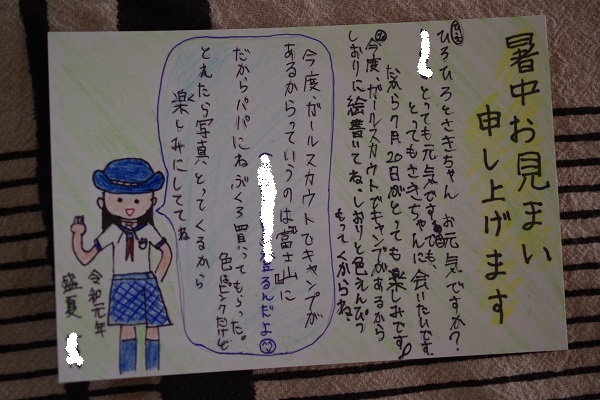 暑中お見まい
申し上げます
ひろひろとさきちゃん お元気ですか?
とっても元気です。でも、
とってもさきちゃんに会いたいです。
だから7月20日がとっても楽しみです。
今度、ガールスカウトでキャンプがあるから
しおりに絵書いてね。しおりと色えんぴつ
もってくからね
今度、ガールスカウトでキャンプが
あるからっていうのは"富士山"に
登るんだよ
だからパパにねぶくろ買ってもらった。
色はピンクだけど
とれたら写真とってくるから
楽しみにしててね
令和元年
盛夏